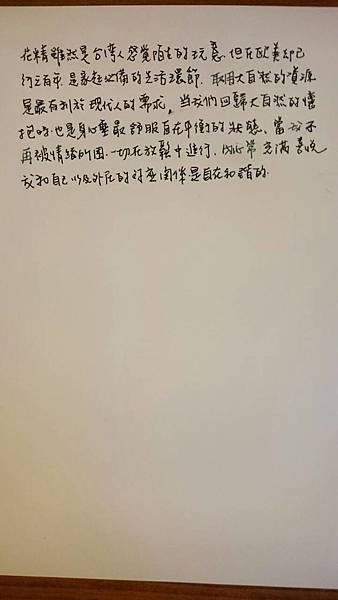 花精雖然是台灣人感覺陌生的玩意,但在歐美却已
行之百年,是家庭必備的生活環節,取用大自然的資源
是最有利於現代人的需求,當我們回歸大自然的懷
抱時,也是身心靈最舒服自在平衡的狀態,當我不
再被情緒所困,一切在放鬆中進行,內心常充滿喜悅
我和自己以及外在的對應關係是自在和諧的.